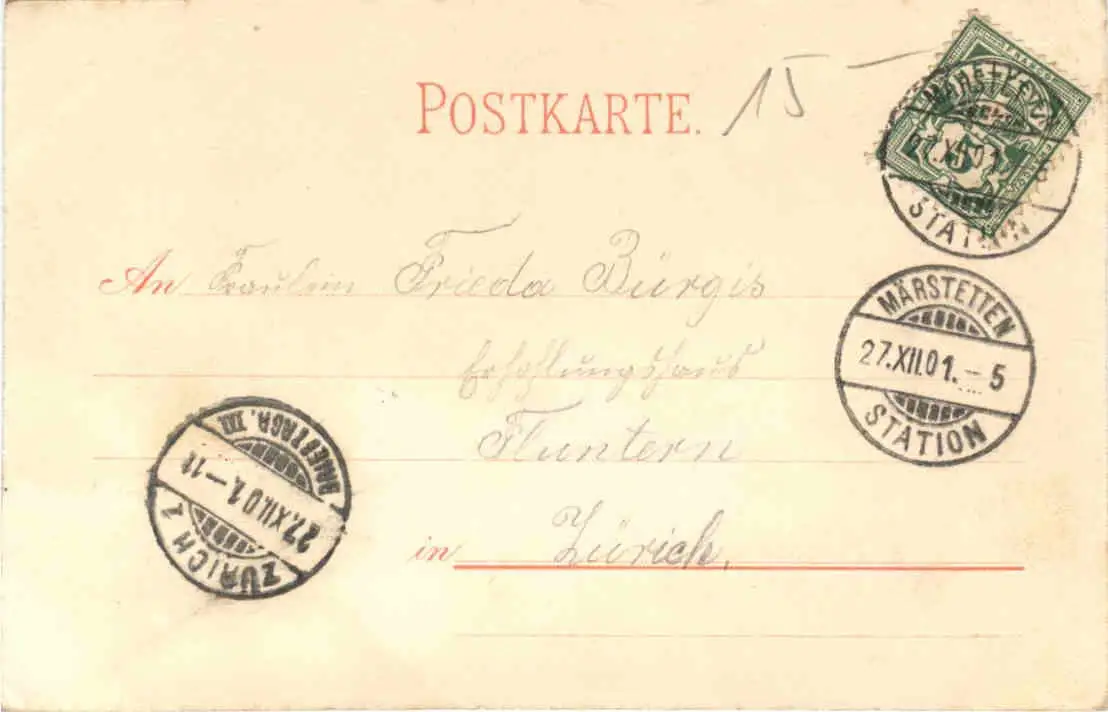 POSTKARTE.
15 –
FRANCO
MÄRSTETTEN
27.XII.01.
5
STATION
An Fräulein Frieda Bürgis
MÄRSTETTEN
27.XII.01.–5
STATION
Erholungshaus
Fluntern
in Zürich.
ZÜRICH 1
27.XII.01.–11
BRIEFTRÄG. III